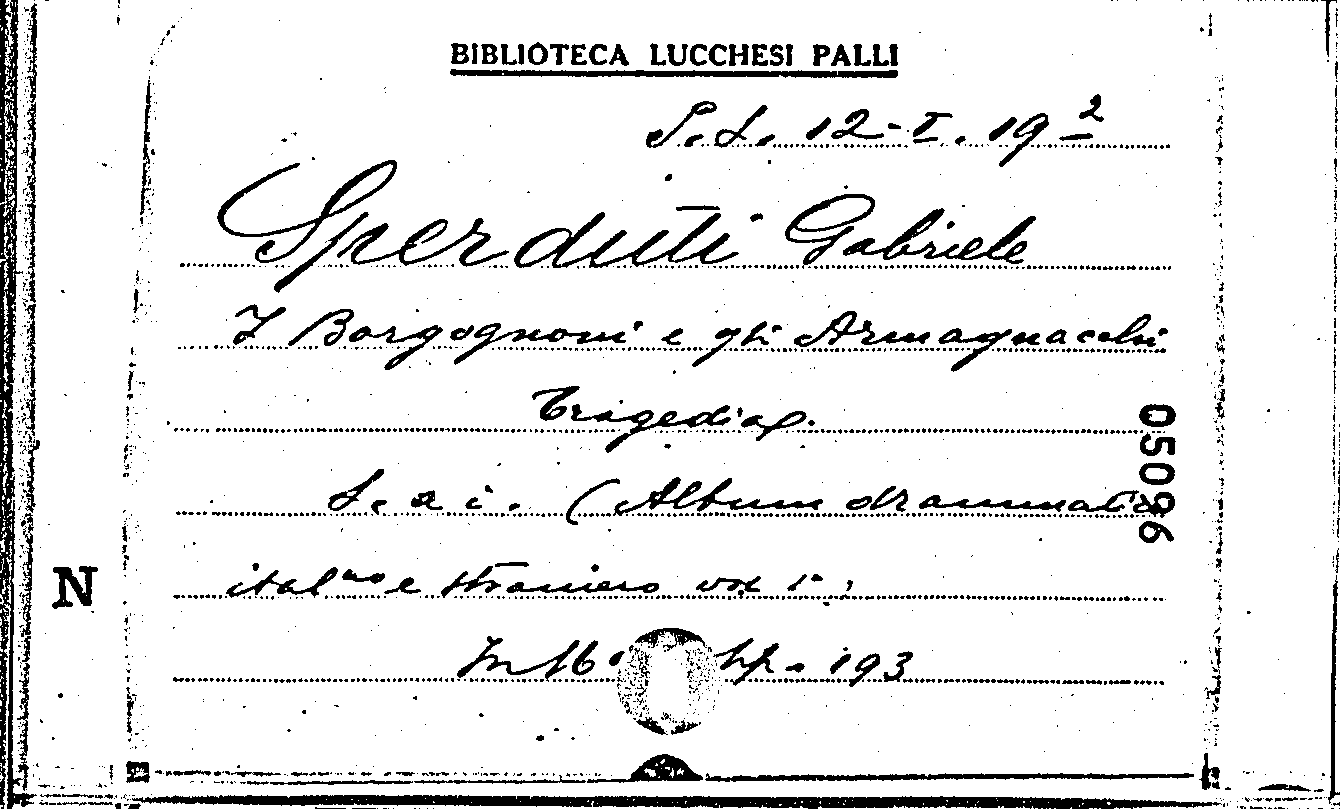 BIBLIOTECA LUCCHESI PALLI
S.L. 12-I. 19 2
Sperduti Gabriele
I Borgognoni e gli Armagnacchi
Tragedia.
S. a i. (Album drammatico
05096
ital.no e straniero vol 1º;
N
In 16º pp. 193